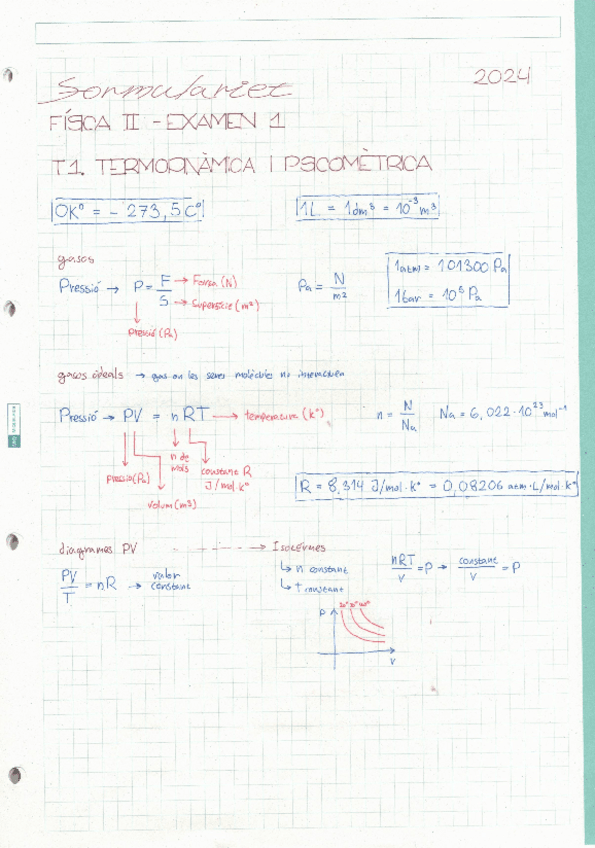 Formulariet 2024
FÍSICA II - EXAMEN 1
T1. TERMODINÀMICA I PSICOMÈTRICA
0K° = - 273,5C°
1L = 1dm³ = 10⁻³m³
gasos
Pressió → P = F/S
→ Força (N)
→ Superfície (m²)
Pressió (Pa)
Pa = N/m²
1atm = 101300 Pa
1bar = 10⁵ Pa
gasos ideals → gas on les seves molècules no interactuen
Pressió → PV = nRT → temperatura (k°)
n = N/Na Na = 6,022·10²³ mol⁻¹
Pressió (Pa)
volum (m³)
n de mols
constant R
J/mol·k°
R = 8,314 J/mol·k° = 0,08206 atm·L/mol·k°
diagrames PV → Isotèrmes
PV/T = nR → valor constant
↳ n constant
↳ T constant
nRT/V = P → constant/V = P
P
V